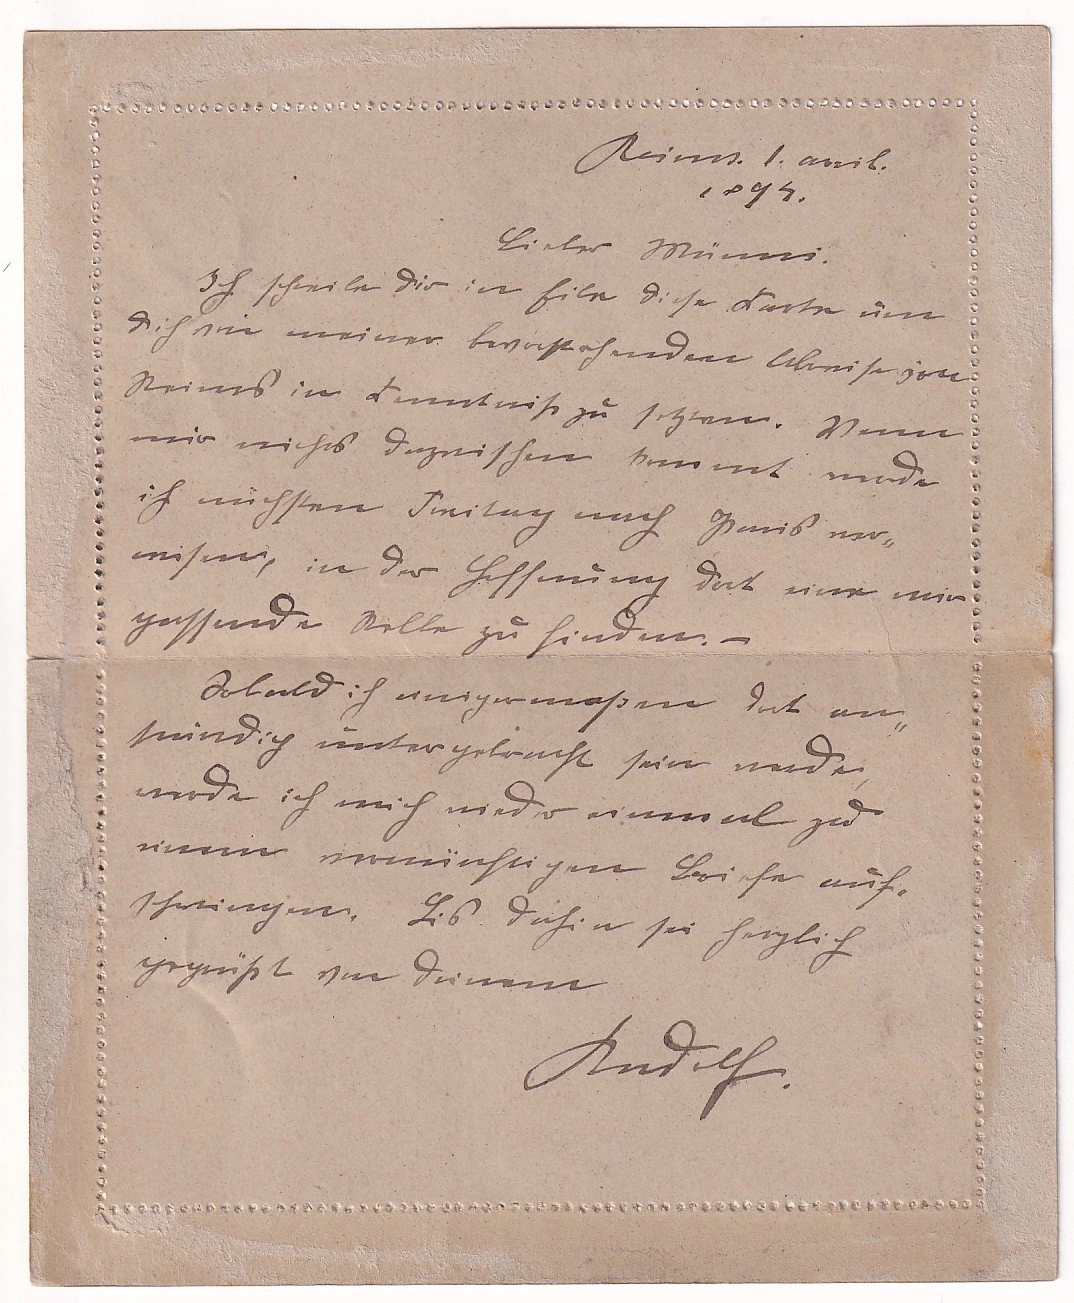 Reims. 1. avril.
1894.
Lieber Männi.
Ich schreibe dir in Eile diese Karte um
dich von meiner bevorstehenden Abreise von
Reims in Kenntniß zu setzen. Wenn
mir nichts dazwischen kommt werde
ich nächsten Freitag nach Paris ver„
reisen, in der Hoffnung dort eine mir
passende Stelle zu finden. –
Sobald ich einigermaßen dort an„
ständig untergebracht sein werde,
werde ich mich wieder einmal zu
einem vernünftigen Briefe auf„
schwingen. Bis dahin sei herzlich
gegrüßt von deinem
Rudolf.